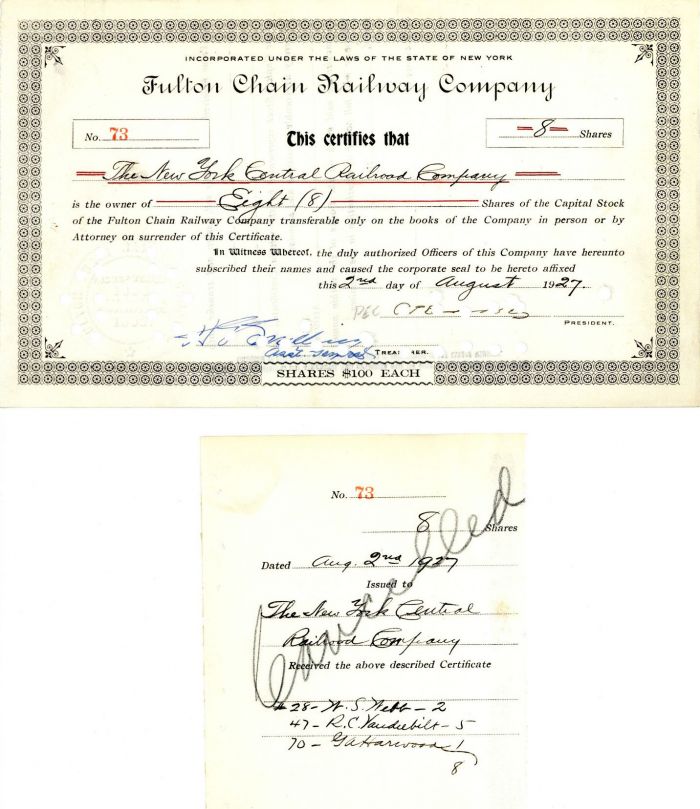 INCORPORATED UNDER THE LAWS OF THE STATE OF NEW YORK
Fulton Chain Railway Company
No. 73
This certifies that
8 Shares
The New York Central Railroad Company
is the owner of Eight (8) Shares of the Capital Stock
of the Fulton Chain Railway Company transferable only on the books of the Company in person or by
Attorney on surrender of this Certificate.
In Witness Whereof, the duly authorized Officers of this Company have hereunto
subscribed their names and caused the corporate seal to be hereto affixed
this 2nd day of August 1927.
PRESIDENT.
TREASURER.
SHARES $100 EACH
No. 73
8 Shares
Dated Aug. 2nd 1927
Issued to
The New York Central
Railroad Company
Received the above described Certificate
Cancelled
# 28 - W. S. Webb - 2
47 - R. C. Vanderbilt - 5
70 - G A Harwood 1
8